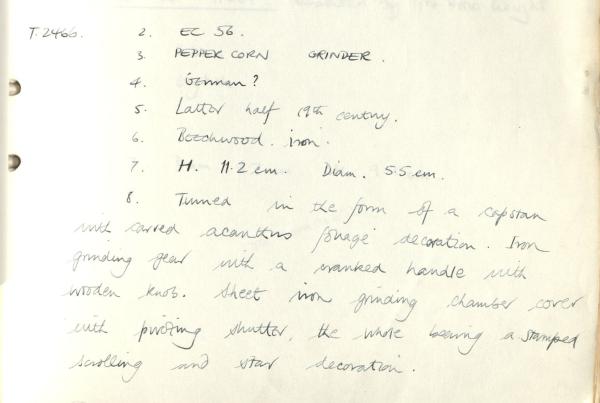 T.2466. 2. EC 56.
3. PEPPER CORN GRINDER.
4. German?
5. Latter half 19th century.
6. Beechwood. iron.
7. H. 11.2 cm. Diam. 5.5 cm.
8. Turned in the form of a capstan
with carved acanthus foliage decoration. Iron
grinding gear with a cranked handle with
wooden knob. Sheet iron grinding chamber cover
with pivoting shutter, the whole bearing a stamped
scrolling and star decoration.